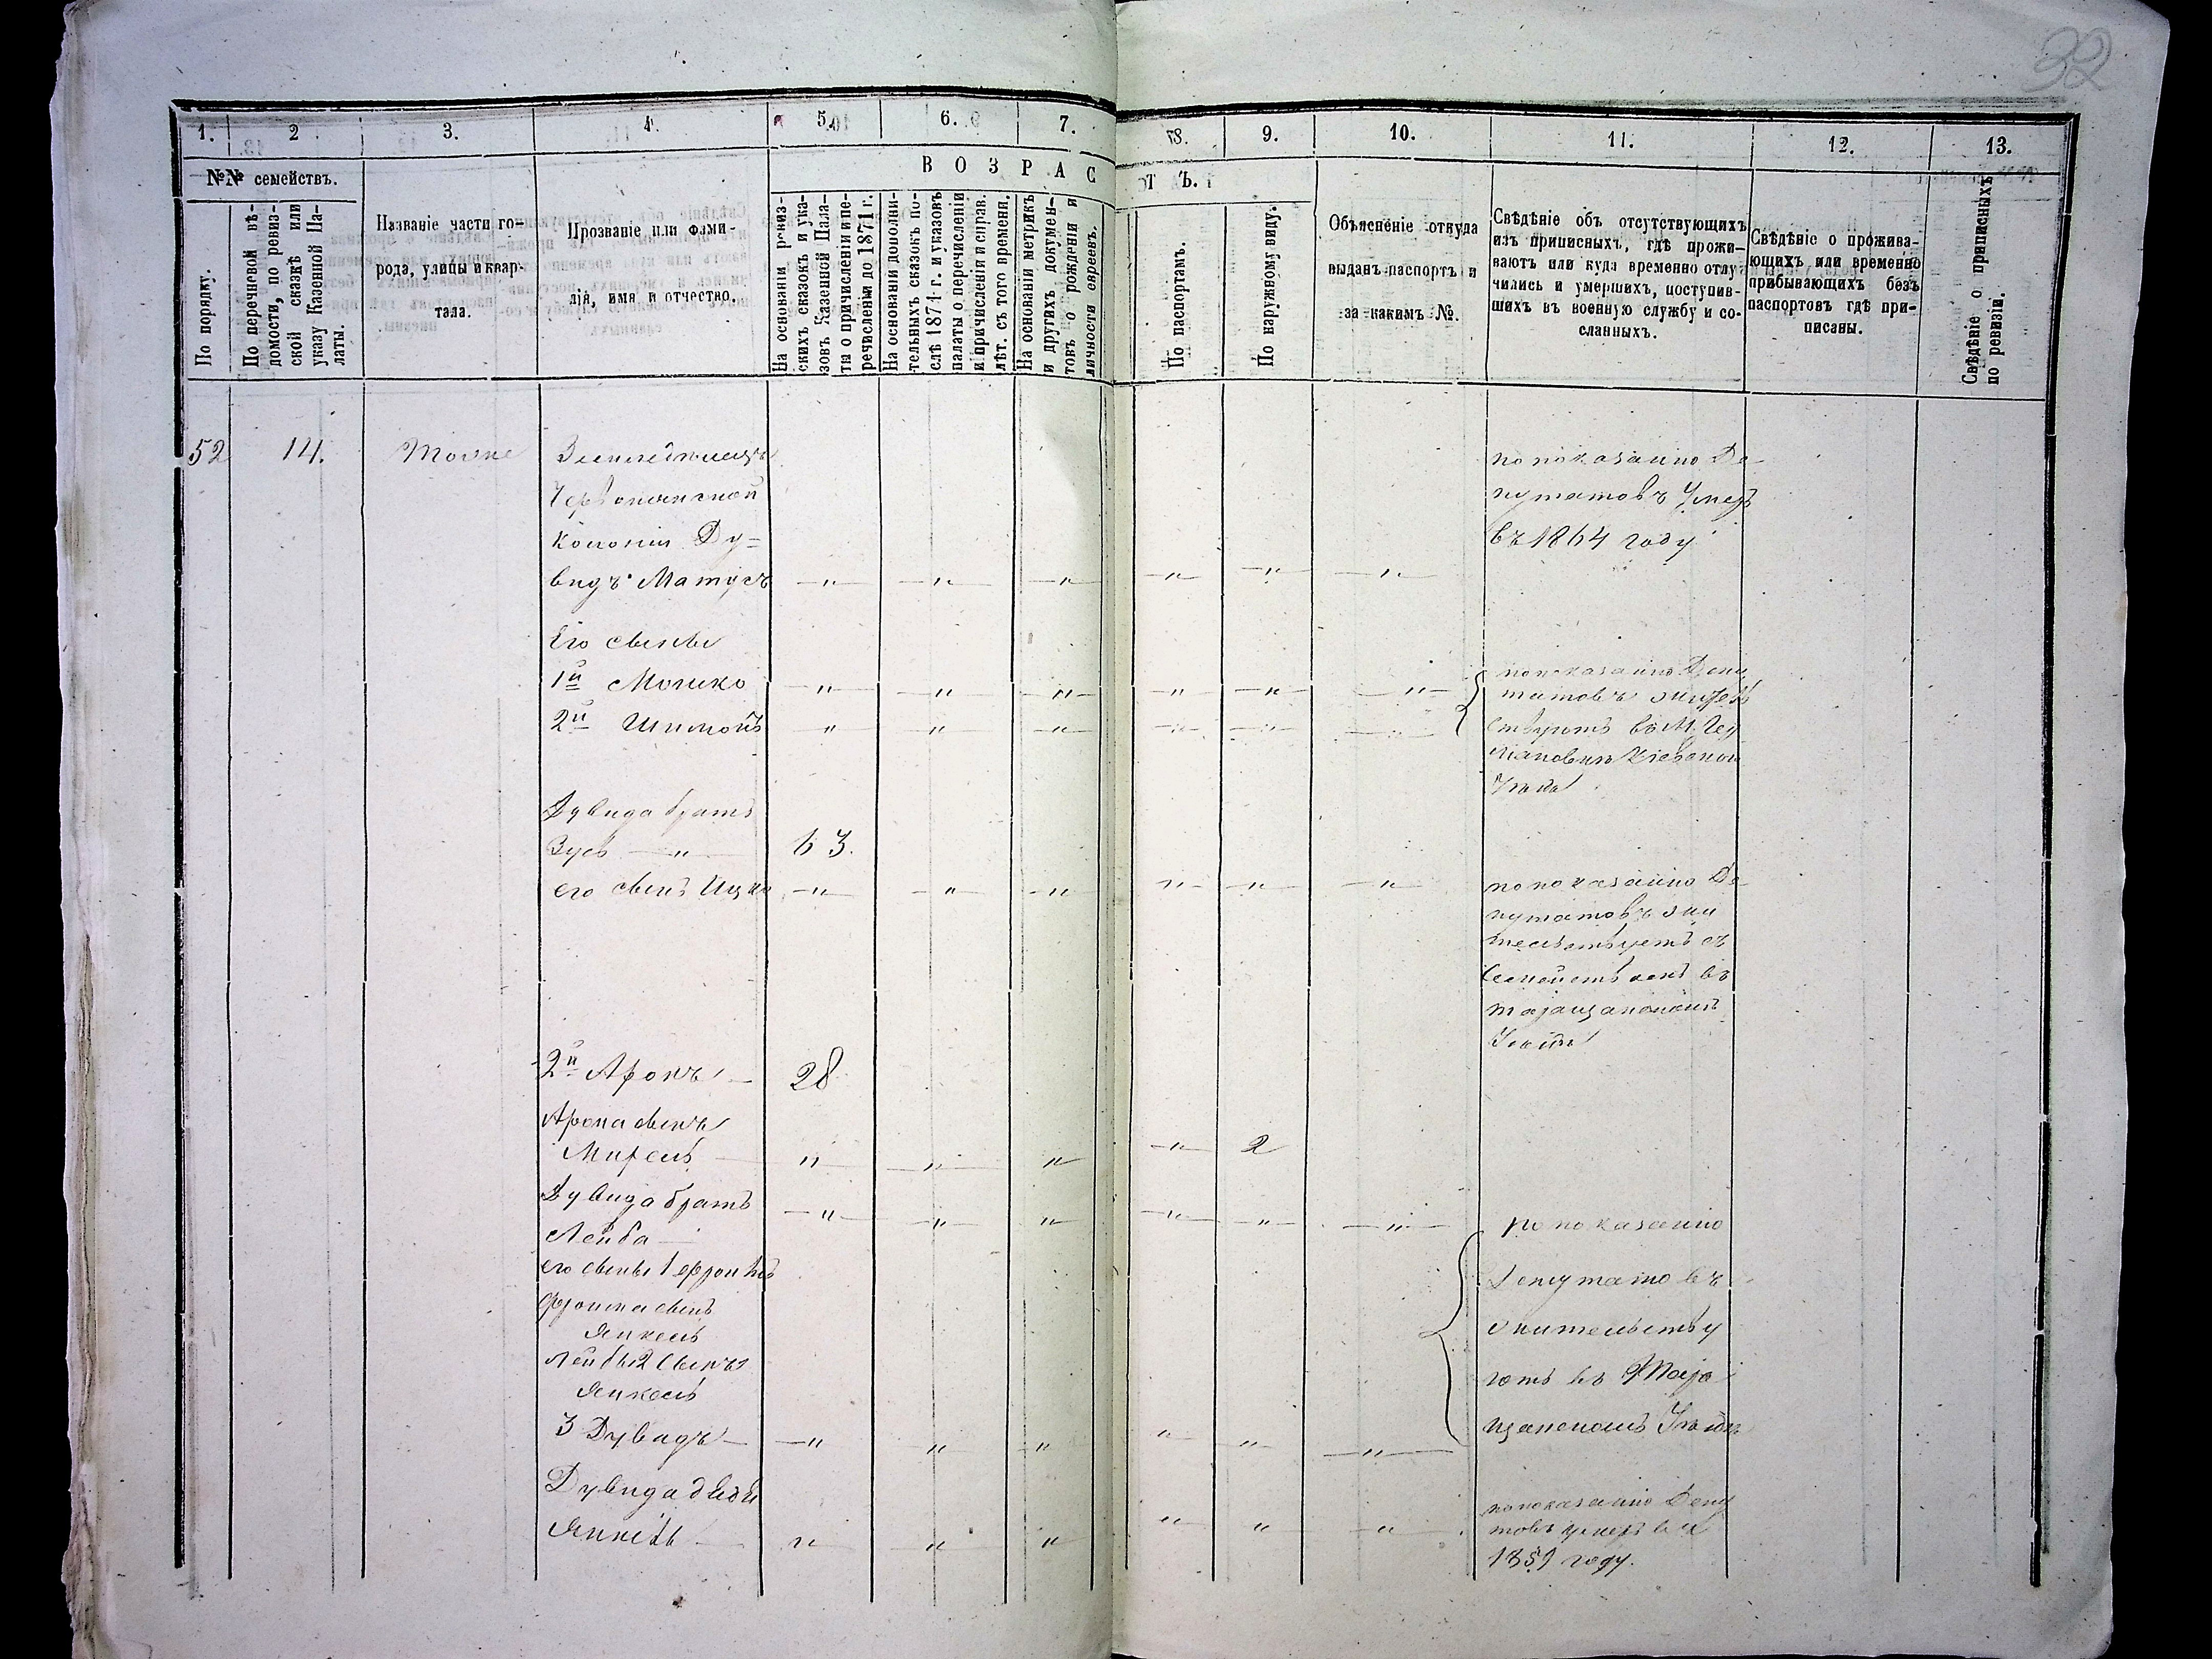 32
1. 2 3. 4. 5. 6. 7. 8. 9. 10. 11. 12. 13.
№№ семействъ.
ВОЗРАСТЪ.
По порядку.
По перечневой вѣ-
домости, по ревиз-
ской сказкѣ или
указу Казенной Па-
латы.
Названіе части го-
рода, улицы и квар-
тала.
Прозваніе или фами-
лія, имя и отчество.
На основаніи ревиз-
скихъ сказокъ и ука-
зовъ Казенной Пала-
ты о причисленіи и пе-
речисленіи до 1871 г.
На основаніи дополни-
тельныхъ сказокъ по-
слѣ 1871 г. и указовъ
палаты о перечисленіи
и причисленіи и справ.
лѣт. съ того времени.
На основаніи метрикъ
и другихъ докумен-
товъ о рожденіи и
личности евреевъ.
По паспортамъ.
По наружному виду.
Объясненіе откуда
выданъ паспортъ и
за какимъ №.
Свѣдѣніе объ отсутствующихъ
изъ приписныхъ, гдѣ прожи-
ваютъ или куда временно отлу-
чились и умершихъ, поступив-
шихъ въ военную службу и со-
сланныхъ.
Свѣдѣніе о прожива-
ющихъ или временно
прибывающихъ безъ
паспортовъ гдѣ при-
писаны.
Свѣдѣніе о приписныхъ
по ревизіи.
52 14. Тоже
колоніи Ду=
видъ Матусъ — " — — " — — " — — " — — " — — " —
по показанію Де-
путатовъ Умеръ
въ 1864 году
Его сынъ
1й Мошко — " — — " — — " — — " — — " — — " —
2й Шимонъ " " " " " "
по показанію Депу
татовъ
Дувида братъ
Зусь — " — 63.
его сынъ Ицко — " — " — " — " — — " — — " —
по показанію Де-
путатовъ жи
тельствуетъ съ
семействомъ въ
Таращанскомъ
Уѣздѣ
2й Аронъ — 28
Арона сынъ
Мирель — " " " — " — 2
Дувида братъ
Лейба — — " — " " — " — " — " —
его сынъ 1
сынъ
Янкель
Лейбы 2 сынъ
Янкель
3 Дувидъ — — " " " " " — " —
по показанію
Депутатовъ
жительству
ютъ въ Тара
щанскомъ Уѣздѣ
Дувида дядя
Янкель — " " " " " "
по показанію Депу
товъ умеръ въ
1859 году.